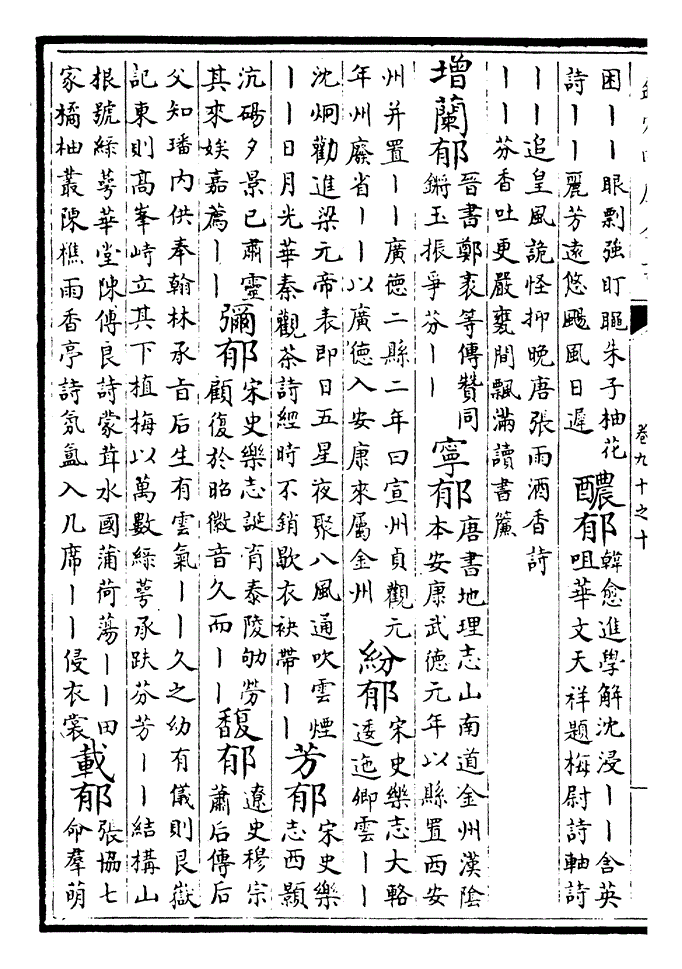 卷九十之十
困丨丨眼剽強盯朱子柚花
詩丨丨麗芳遠悠颺風日遲
醲郁
韓愈進學解沈浸丨丨含英
咀華文天祥題梅尉詩軸詩
丨丨追皇風詭怪抑晚唐張雨酒香詩
丨丨芬香吐更嚴甕間飄滿讀書簾
增蘭郁
晉書鄭袤等傳贊同
鏘玉振爭芬丨丨
寧郁
唐書地理志山南道金州漢陰
本安康武德元年以縣置西安
州并置丨丨廣德二縣二年曰宣州貞觀元
年州廢省丨丨以廣德入安康來屬金州
紛郁
宋史樂志大輅
逶迤卿雲丨丨
沈炯勸進梁元帝表即日五星夜聚八風通吹雲煙
丨丨日月光華秦觀茶詩經時不銷歇衣袂帶丨丨
芳郁
宋史樂
志西顥
沆碭夕景已肅靈
其來娭嘉薦丨丨
彌郁
宋史樂志誕育泰陵劬勞
顧復於昭徽音久而丨丨
馥郁
遼史穆宗
蕭后傳后
父知璠內供奉翰林承旨后生有雲氣丨丨久之幼有儀則艮嶽
記東則高峯峙立其下植梅以萬數綠萼承趺芬芳丨丨結構山
根號綠萼華堂陳傅良詩蒙茸水國蒲荷蕩丨丨田
家橘柚叢陳樵雨香亭詩氛氳入几席丨丨侵衣裳
載郁
張協七
命羣萌